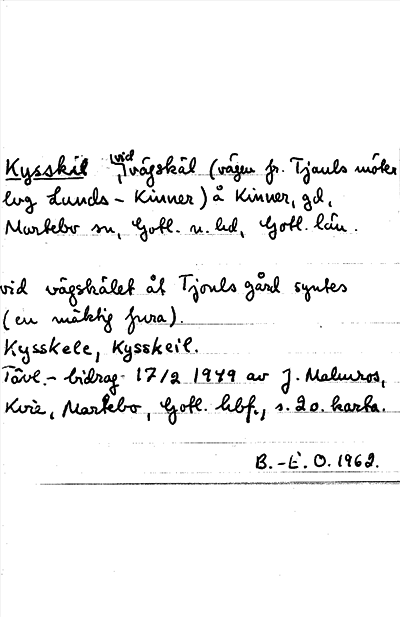 Kysskäl vid vägskäl (vägen fr. Tjauls möter
lvg Lunds – Kinner) å Kinner, gd,
Martebo sn, Gotl. n. hd, Gotl. län.
vid vägskälet åt Tjouls gård syntes
(en mäktig fura).
Kysskele, Kysskeil.
Tävl.-bidrag 17/2 1949 av J. Malmros,
Kvie, Martebo, Gotl. hbf., s. 2 o. karta.
B.-E. O. 1962.